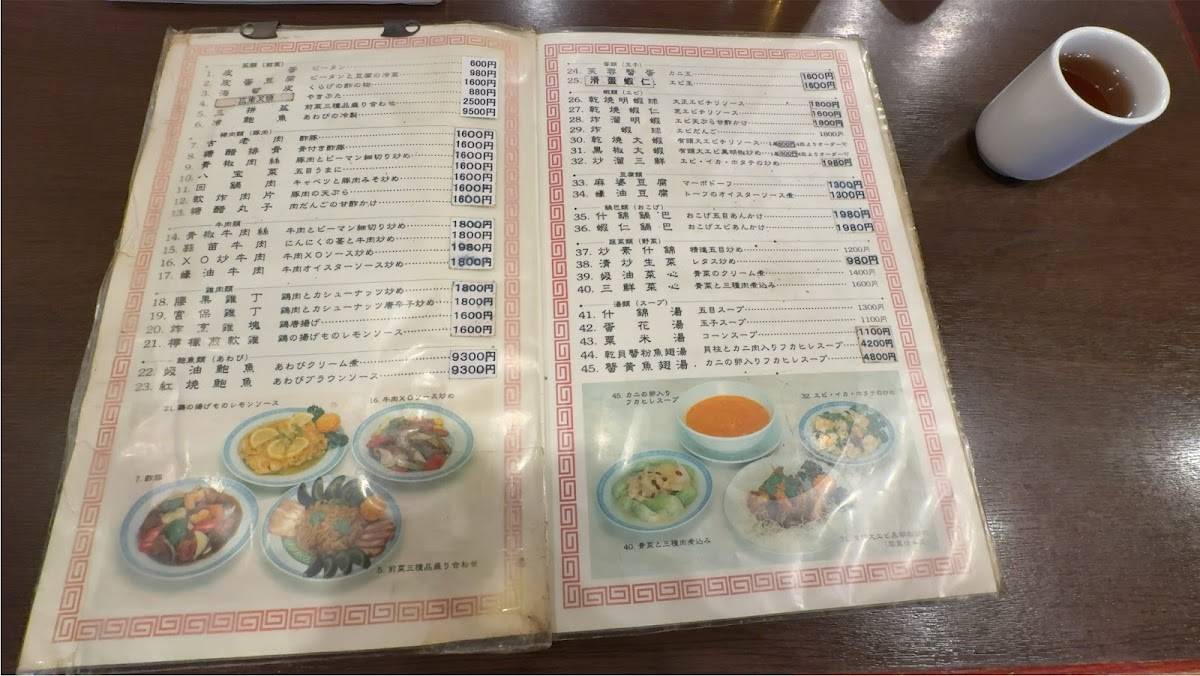 瓦類(前菜)
1. 皮蛋 ピータン 600円
2. 皮蛋豆腐 ピータンと豆腐の冷菜 980円
3. 海蜇皮 くらげの酢の物 1600円
4. やきぶた 880円
5. 三拼盆 前菜三種品盛り合わせ 2500円
6. 冷鮑魚 あわびの冷製 9500円
猪肉類(豚肉)
7. 古老肉 酢豚 1600円
8. 糖醋排骨 骨付き酢豚 1600円
9. 青椒肉絲 豚肉とピーマン細切り炒め 1600円
10. 八宝菜 五目うまに 1600円
11. 回鍋肉 キャベツと豚肉みそ炒め 1600円
12. 軟炸肉片 豚肉の天ぷら 1600円
13. 糖醋丸子 肉だんごの甘酢かけ 1600円
牛肉類
14. 青椒牛肉絲 牛肉とピーマン細切り炒め 1800円
15. 蒜苗牛肉 にんにくの茎と牛肉炒め 1800円
16. XO炒牛肉 牛肉XOソース炒め 1980円
17. 蠔油牛肉 牛肉オイスターソース炒め 1800円
雞肉類
18. 腰果雞丁 鶏肉とカシューナッツ炒め 1800円
19. 宮保雞丁 鶏肉とカシューナッツ唐辛子炒め 1800円
20. 炸烹雞塊 鶏唐揚げ 1600円
21. 檸檬煎軟雞 鶏の揚げものレモンソース 1600円
鮑魚類(あわび)
22. 奶油鮑魚 あわびクリーム煮 9300円
23. 紅燒鮑魚 あわびブラウンソース 9300円
21. 鶏の揚げものレモンソース
16. 牛肉XOソース炒め
7. 酢豚
5. 前菜三種品盛り合わせ
蛋類(玉子)
24. 芙蓉蟹蛋 カニ玉 1600円
25. 滑蛋蝦仁 エビ玉 1600円
蝦類(エビ)
26. 乾燒明蝦球 大正エビチリソース 1800円
27. 乾燒蝦仁 芝エビチリソース 1600円
28. 炸溜明蝦 エビ天ぷら甘酢かけ 1800円
29. 炸蝦球 エビだんご 1800円
30. 乾燒大蝦 有頭大エビチリソース
31. 黒椒大蝦 有頭大エビ黒胡椒炒め
32. 炒溜三鮮 エビ・イカ・ホタテの炒め 1980円
豆腐類
33. 麻婆豆腐 マーボドーフ 1300円
34. 蠔油豆腐 トーフのオイスターソース煮 1300円
鍋巴類(おこげ)
35. 什錦鍋巴 おこげ五目あんかけ 1980円
36. 蝦仁鍋巴 おこげエビあんかけ 1980円
蔬菜類(野菜)
37. 炒素什錦 精進五目炒め 1200円
38. 清炒生菜 レタス炒め 980円
39. 奶油菜心 青菜のクリーム煮 1400円
40. 三鮮菜心 青菜と三種肉煮込み 1600円
湯類(スープ)
41. 什錦湯 五目スープ 1300円
42. 蛋花湯 玉子スープ 1100円
43. 粟米湯 コーンスープ 1100円
44. 乾貝蟹粉魚翅湯 貝柱とカニ肉入りフカヒレスープ 4200円
45. 蟹黄魚翅湯 カニの卵入りフカヒレスープ 4800円
45. カニの卵入り
フカヒレスープ
32. エビ・イカ・ホタテの炒め
40. 青菜と三種肉煮込み